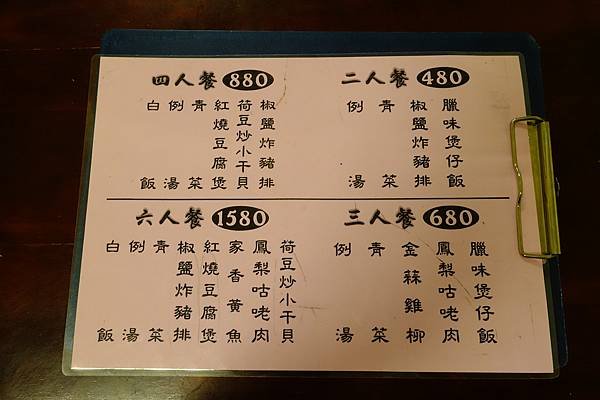 二人餐 480
臘味煲仔飯
椒鹽炸豬排
青菜
例湯
四人餐 880
椒鹽炸豬排
荷豆炒小干貝
紅燒豆腐煲
青菜
例湯
白飯
三人餐 680
臘味煲仔飯
鳳梨咕咾肉
金蒜雞柳
青菜
例湯
六人餐 1580
荷豆炒小干貝
鳳梨咕咾肉
家香黃魚
紅燒豆腐煲
椒鹽炸豬排
青菜
例湯
白飯